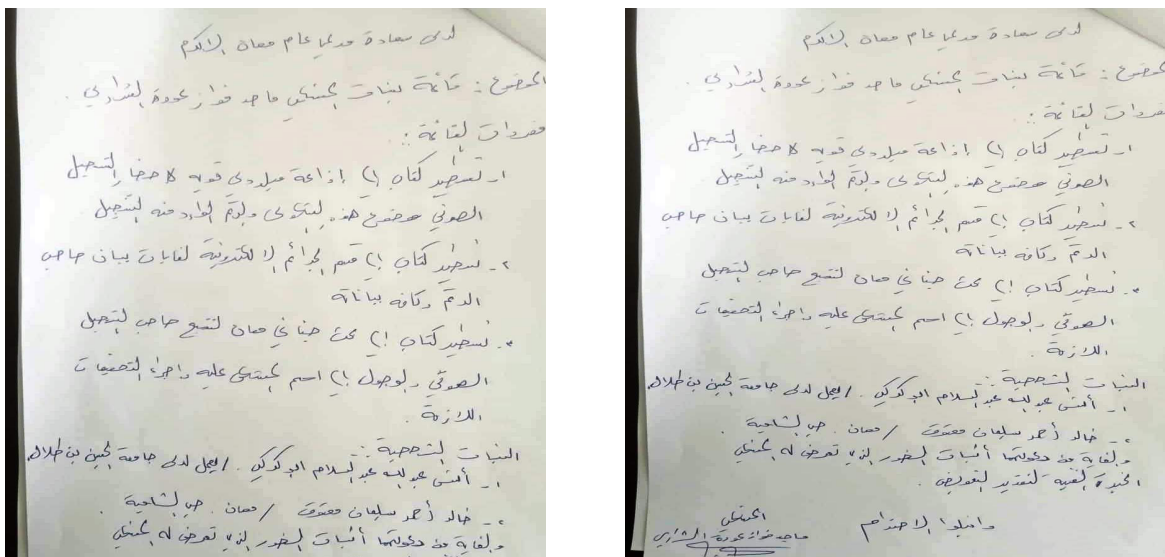 لدى سعادة مدعي عام معان الاكرم
الموضوع : قائمة بينات المشتكي ماجد فواز عودة الشراري .
مفردات القائمة :
١- تسطير كتاب إلى إذاعة ميلودي قويه لاحضار التسجيل
الصوتي موضوع هذه الشكوى والرقم الوارد منه التسجيل
٢- تسطير كتاب إلى قسم الجرائم الالكترونية لغايات بيان صاحب
الرقم وكافه بياناته
٣- تسطير كتاب إلى بحث جنائي معان لتتبع صاحب التسجيل
الصوتي والوصول إلى اسم المشتكى عليه واجراء التحقيقات
اللازمة .
البينات الشخصية :
١- أنس عبدالله عبدالسلام ابوكركي . /يعمل لدى جامعة الحسين بن طلال
٢- خالد أحمد سليمان معتوق / معان . حي الشامية .
والغاية من دعوتهما أثبات الضرر الذي تعرض له المشتكي
لدى سعادة مدعي عام معان الاكرم
الموضوع : قائمة بينات المشتكي ماجد فواز عودة الشراري .
مفردات القائمة :
١- تسطير كتاب إلى إذاعة ميلودي قويه لاحضار التسجيل
الصوتي موضوع هذه الشكوى والرقم الوارد منه التسجيل
٢- تسطير كتاب إلى قسم الجرائم الالكترونية لغايات بيان صاحب
الرقم وكافه بياناته
٣- تسطير كتاب إلى بحث جنائي معان لتتبع صاحب التسجيل
الصوتي والوصول إلى اسم المشتكى عليه واجراء التحقيقات
اللازمة .
البينات الشخصية :
١- أنس عبدالله عبدالسلام ابوكركي . /يعمل لدى جامعة الحسين بن طلال
٢- خالد أحمد سليمان معتوق / معان . حي الشامية .
والغاية من دعوتهما أثبات الضرر الذي تعرض له المشتكي
الخبرة الفنية لتقدير التعويض .
واقبلوا الاحترام
المشتكي
ماجد فواز عودة الشراري